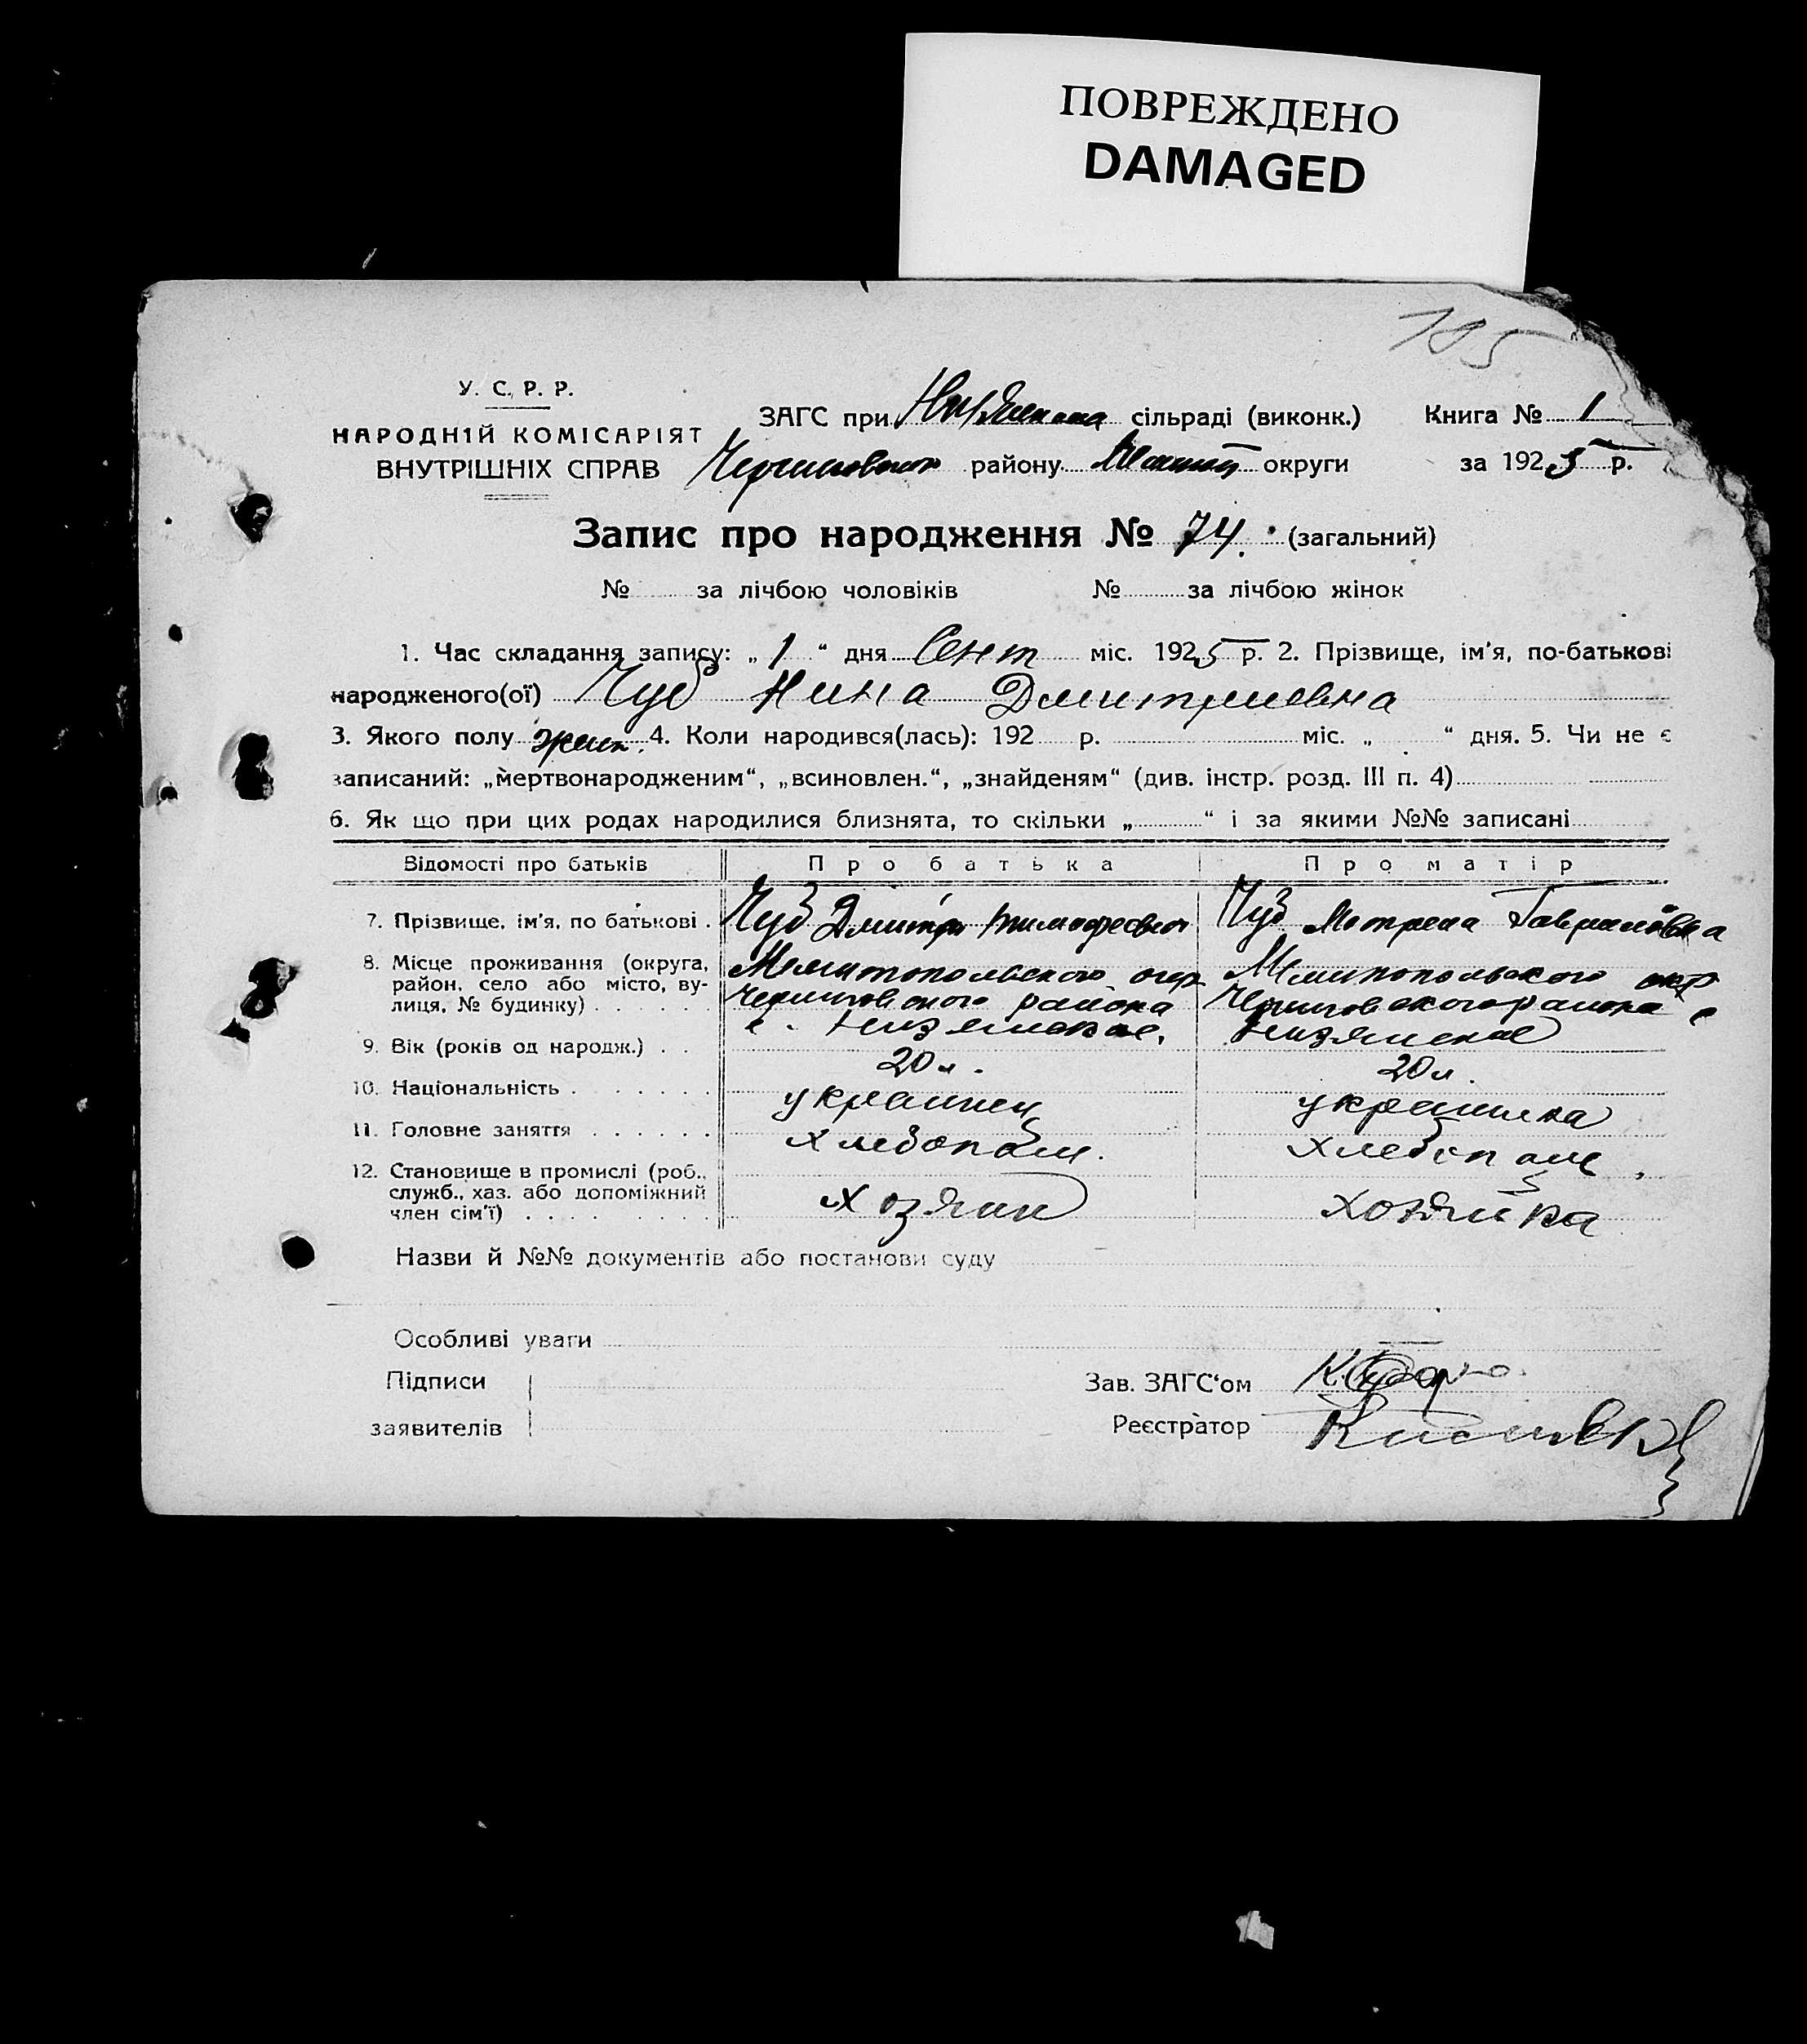 ПОВРЕЖДЕНО
DAMAGED
195
У. С. Р. Р.
НАРОДНІЙ КОМІСАРІЯТ
ВНУТРІШНІХ СПРАВ
ЗАГС при сільраді (виконк.) Книга № 1
району округи за 1925 р.
Запис про народження № 74. (загальний)
№ за лічбою чоловіків № за лічбою жінок
1. Час складання запису: „ 1 “ дня Сент міс. 1925 р. 2. Прізвище, ім’я, по-батькові
народженого(ої) Чуб Нина Дмитриевна
3. Якого полу жен. 4. Коли народився(лась): 192 р. міс. „ “ дня. 5. Чи не є
записаний: „мертвонародженим“, „всиновлен.“, „знайденям“ (див. інстр. розд. III п. 4)
6. Як що при цих родах народилися близнята, то скільки „ “ і за якими №№ записані
Відомості про батьків Про батька Про матір
7. Прізвище, ім’я, по батькові . Чуб Дмитри Тимофеевич Чуб Мотрена Гавриловна
8. Місце проживання (округа, Мелитопольского окр Мелитопольского окр
район, село або місто, ву- Черниговского района Черниговского района с
лиця, № будинку) . . . . . . с. Низянское. Низянское
9. Вік (років од народж.) . . 20 л. 20 л.
10. Національність . . . . . . украинец украинка
11. Головне заняття . . . . . . хлебопаш. хлебопаш.
12. Становище в промислі (роб.,
служб., хаз. або допоміжний хозяин хозяйка
член сім’ї) . . . . . . . .
Назви й №№ документів або постанови суду
Особливі уваги
Підписи
заявителів
Зав. ЗАГС‘ом
Реєстратор